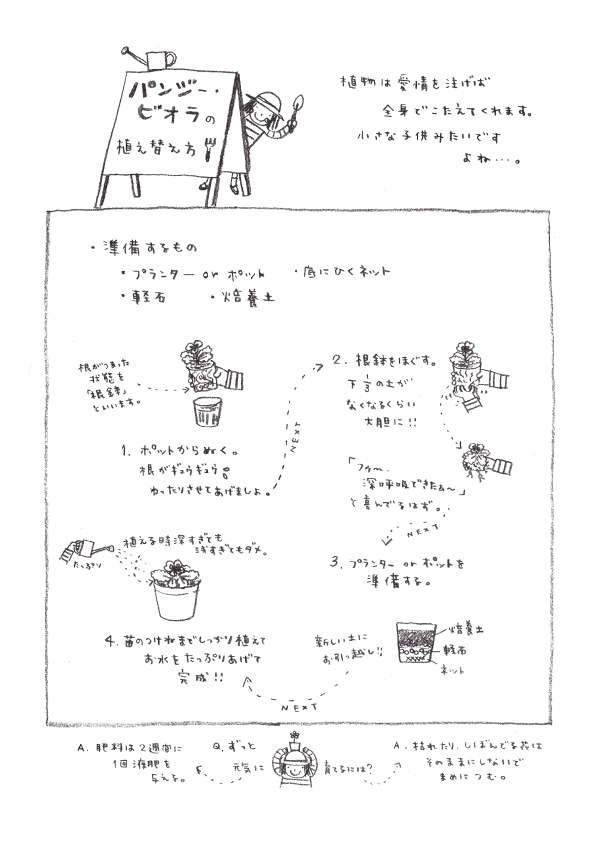 パンジー・
ビオラの
植え替え方
植物は愛情を注げば
全身でこたえてくれます。
小さな子供みたいです
よね…。
・準備するもの
・プランター or ポット ・底にひくネット
・軽石 ・焙養土
根がつまった
状態を
「根鉢」
といいます。
1. ポットからぬく。
根がギュウギュウ
ゆったりさせてあげましょ。
NEXT
2. 根鉢をほぐす。
下1/3の土が
なくなるくらい
大胆に!!
「フゥ〜、
深呼吸できたぁ〜」
と喜んでるはず。
NEXT
3. プランター or ポットを
準備する。
焙養土
軽石
ネット
新しい土に
お引っ越し!!
NEXT
たっぷり
植える時深すぎても
浅すぎてもダメ。
4. 苗のつけねまでしっかり植えて
お水をたっぷりあげて
完成!!
Q. ずっと
元気に
育てるには?
A. 肥料は2週間に
1回液肥を
与える。
A. 枯れたり、しぼんでる花は
そのままにしないで
まめにつむ。